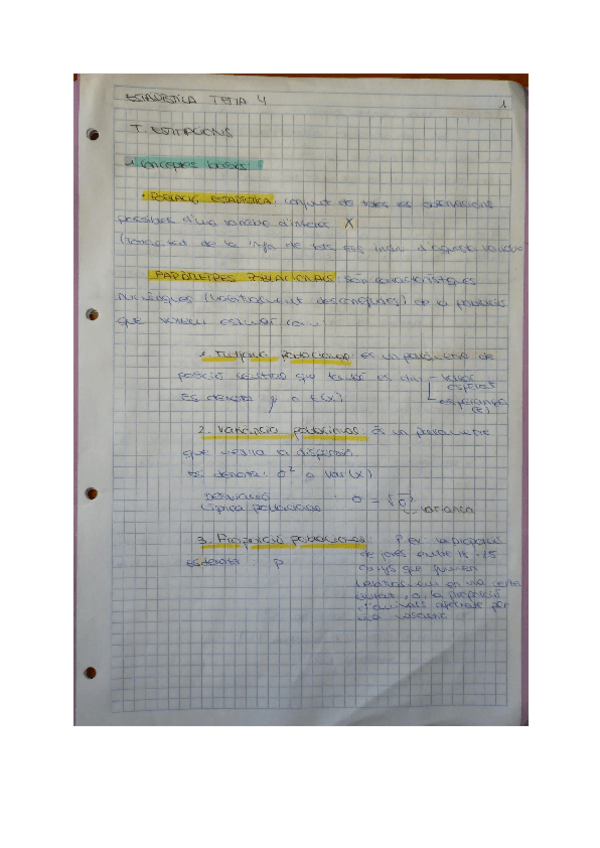 ESTADÍSTICA TEMA 4 1
T. ESTIMACIONS
1. Conceptes bàsics
POBLACIÓ ESTADÍSTICA: conjunt de totes les observacions
possibles d'una variable d'interès X
de la de tots els d'aquesta variable
PARÀMETRES POBLACIONALS: són característiques
numèriques (habitualment desconegudes) de la població
que volem estimar com:
1. Mitjana poblacional: és un paràmetre de
posició central que també es diu valor
esperat
Es denota μ o E(X) esperança
(E)
2. Variància poblacional: És un paràmetre
que mesura la dispersió.
Es denota: σ² o Var(X)
Desviació : σ = √σ²
típica poblacional variança
3. Proporció poblacional: P.ex. la proporció
Es denota: p de joves entre 18-25
anys que fumen
en una certa
ciutat, o la proporció
d'animals per
una